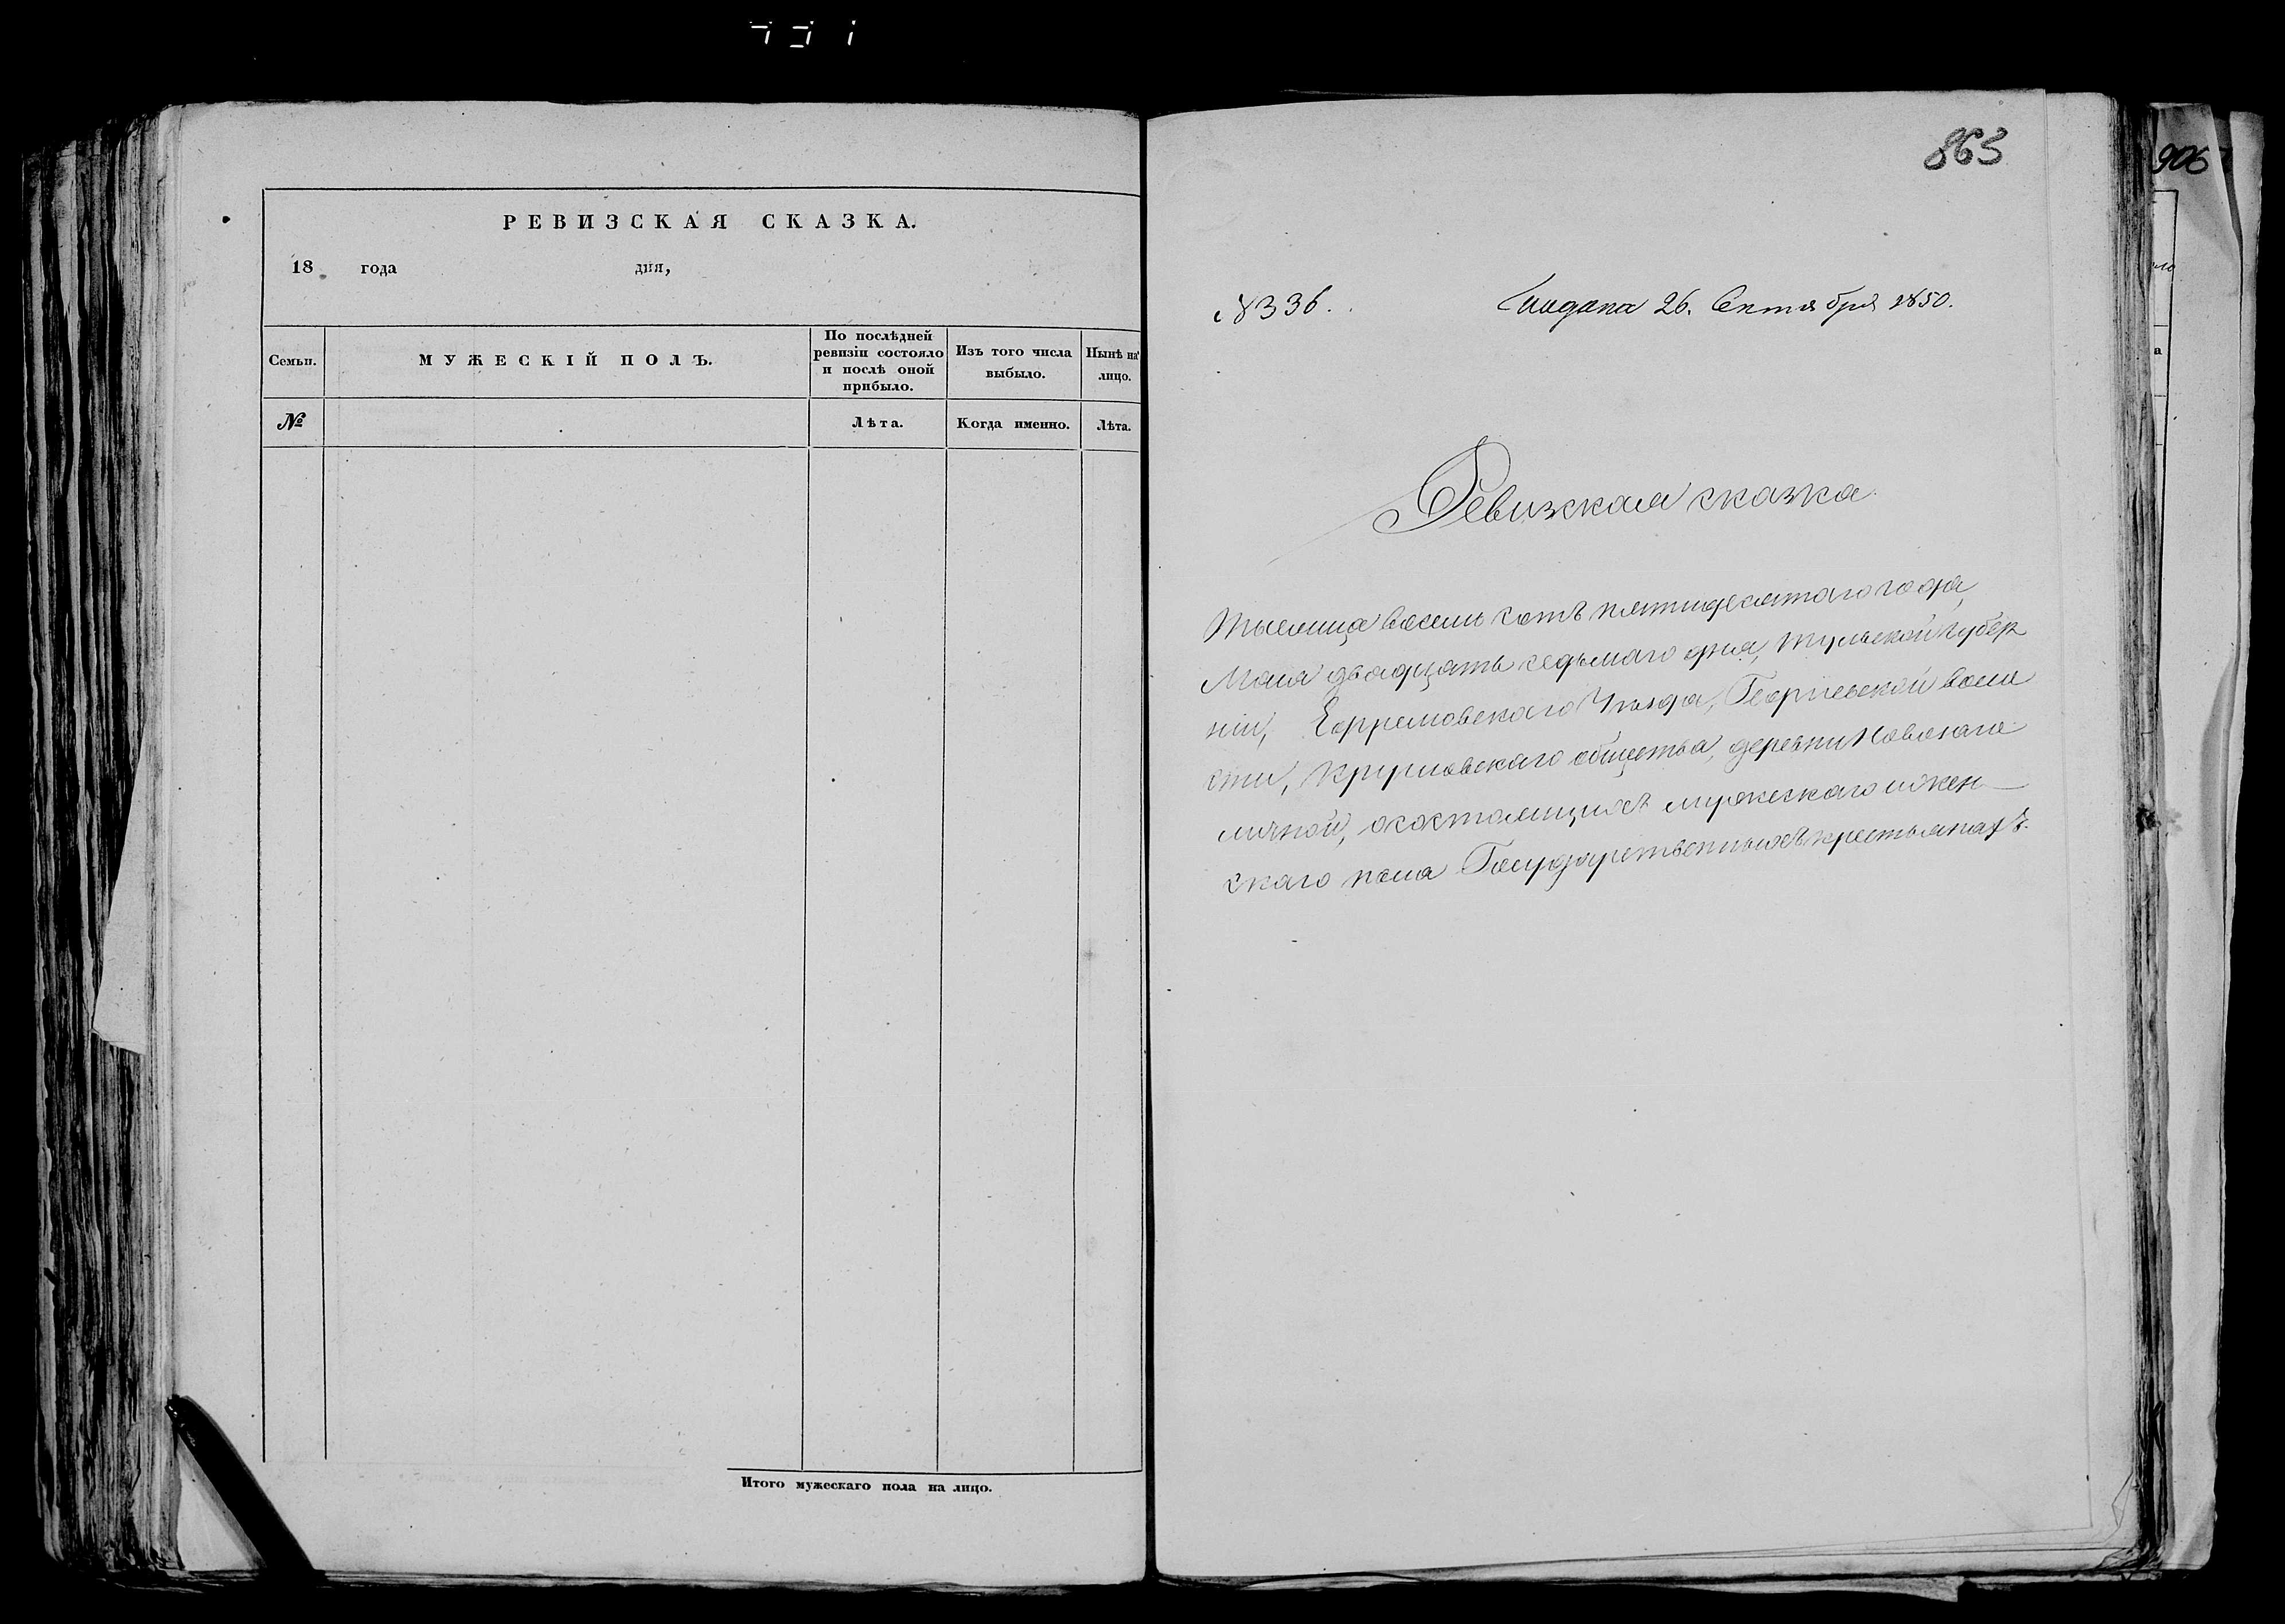 РЕВИЗСКАЯ СКАЗКА.
18 года дня,
Семьи.
МУЖЕСКІЙ ПОЛЪ.
По послѣдней ревизіи состояло и послѣ оной прибыло.
Изъ того числа выбыло.
Нынѣ на лицо.
№
Лѣта.
Когда именно.
Лѣта.
Итого мужескаго пола на лицо.
863
906
№ 336.
26. Сентября 1850.
Ревизская сказка
Тысяча восемь сотъ пятидесятаго года,
Маія двадцать седьмаго дня, Тульской губер
ніи, Ефремовскаго Уѣзда, Георгіевской воло
сти, Кругловскаго общества, деревни
о состоящихъ мужескаго и жен
скаго пола Государственныхъ крестьянахъ.